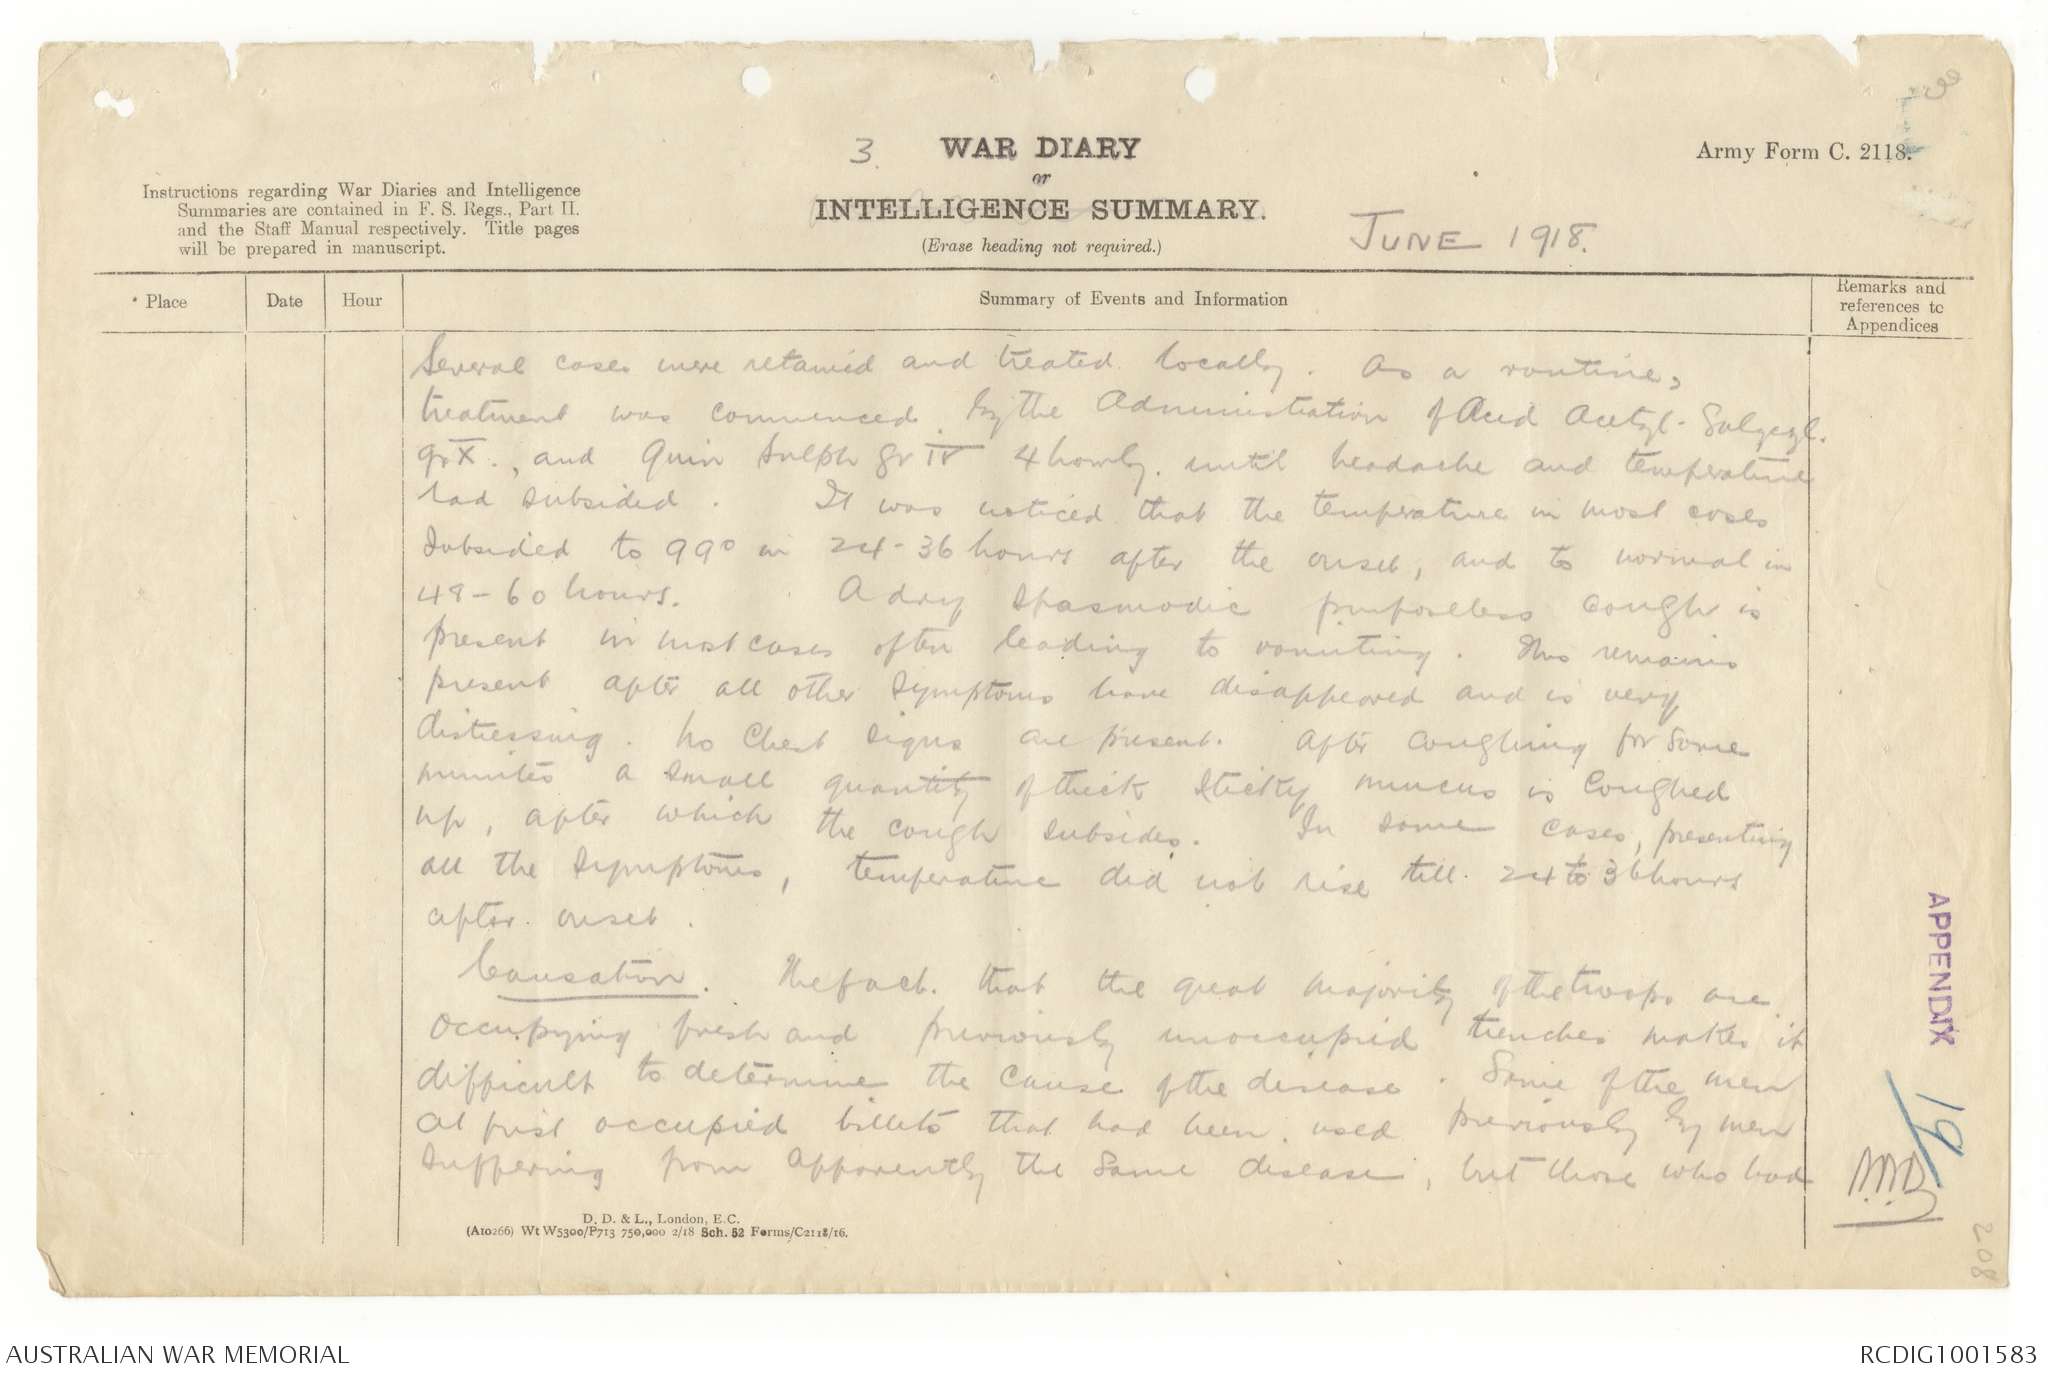 3.
WAR DIARY
or
INTELLIGENCE SUMMARY.
(Erase heading not required.)
Army Form C. 2118.
Instructions regarding War Diaries and Intelligence
Summaries are contained in F. S. Regs., Part II.
and the Staff Manual respectively. Title pages
will be prepared in manuscript.
JUNE 1918.
Place
Date
Hour
Summary of Events and Information
Remarks and
references to
Appendices
Several cases were retained and treated locally. As a routine,
treatment was commenced by the Administration of Acid Acetyl-Salycyl.
gr X., and Quin Sulph gr IV 4 hourly. until headache and temperature
had subsided. It was noticed that the temperature in most cases
subsided to 99° in 24-36 hours after the onset, and to normal in
48-60 hours. A dry spasmodic purposeless cough is
present in most cases often leading to vomiting. This remains
present after all other symptoms have disappeared and is very
distressing. No Chest signs are present. After coughing for some
minutes a small quantity of thick sticky mucus is coughed
up, after which the cough subsides. In some cases, presenting
all the symptoms, temperature did not rise till 24 to 36 hours
after onset.
Causation. The fact that the great majority of the troops are
occupying fresh and previously unoccupied trenches makes it
difficult to determine the cause of the disease. Some of the men
at first occupied billets that had been used previously by men
suffering from apparently the same disease, but those who had
D. D. & L., London, E.C.
(A10266) Wt W5300/P713 750,000 2/18 Sch. 52 Forms/C2118/16.
APPENDIX
19
208
AUSTRALIAN WAR MEMORIAL
RCDIG1001583